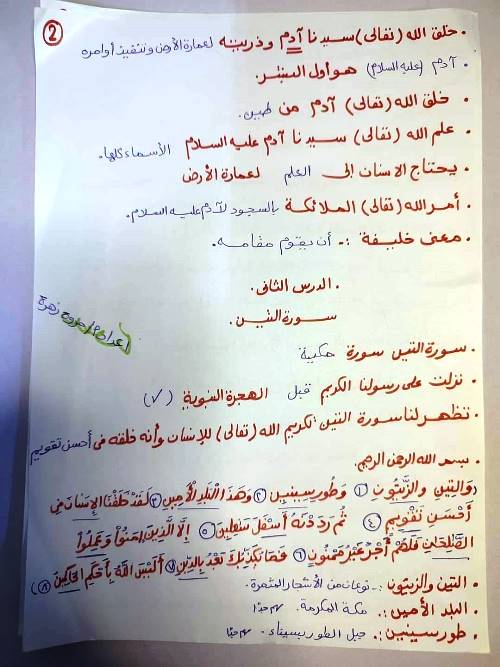 ②
. خلق الله (تعالى) سيدنا آدم وذريته لعمارة الأرض وتنفيذ أوامره
. آدم (عليه السلام) هو أول البشر.
. خلق الله (تعالى) آدم من طين.
. علم الله (تعالى) سيدنا آدم عليه السلام الأسماء كلها.
. يحتاج الإنسان إلى العلم لعمارة الأرض
. أمر الله (تعالى) الملائكة بالسجود لآدم عليه السلام.
. معنى خليفة :- أن يقوم مقامه.
. الدرس الثاني.
سورة التين.
. سورة التين سورة مكية
. نزلت على رسولنا الكريم قبل الهجرة النبوية (✓)
. تظهر لنا سورة التين تكريم الله (تعالى) للإنسان وأنه خلقه في أحسن تقويم
. بسم الله الرحمن الرحيم.
(وَالتِّينِ وَالزَّيْتُونِ ① وَطُورِ سِينِينَ ② وَهَذَا الْبَلَدِ الْأَمِينِ ③ لَقَدْ خَلَقْنَا الْإِنسَانَ فِي
أَحْسَنِ تَقْوِيمٍ ④ ثُمَّ رَدَدْنَهُ أَسْفَلَ سَفِلِينَ ⑤ إِلَّا الَّذِينَ آمَنُوا وَعَمِلُوا
الصَّلِحَتِ فَلَهُمْ أَجْرٌ غَيْرُ مَمْنُونٍ ⑥ فَمَا يُكَذِّبُكَ بَعْدُ بِالدِّينِ ⑦ أَلَيْسَ اللَّهُ بِأَحْكَمِ الْحَاكِمِينَ ⑧)
. التين والزيتون :- نوعان من الأشجار المثمرة.
. البلد الأمين :. مكة المكرمة. مهم جدًا
. طور سينين :. جبل الطور بسيناء. مهم جدًا